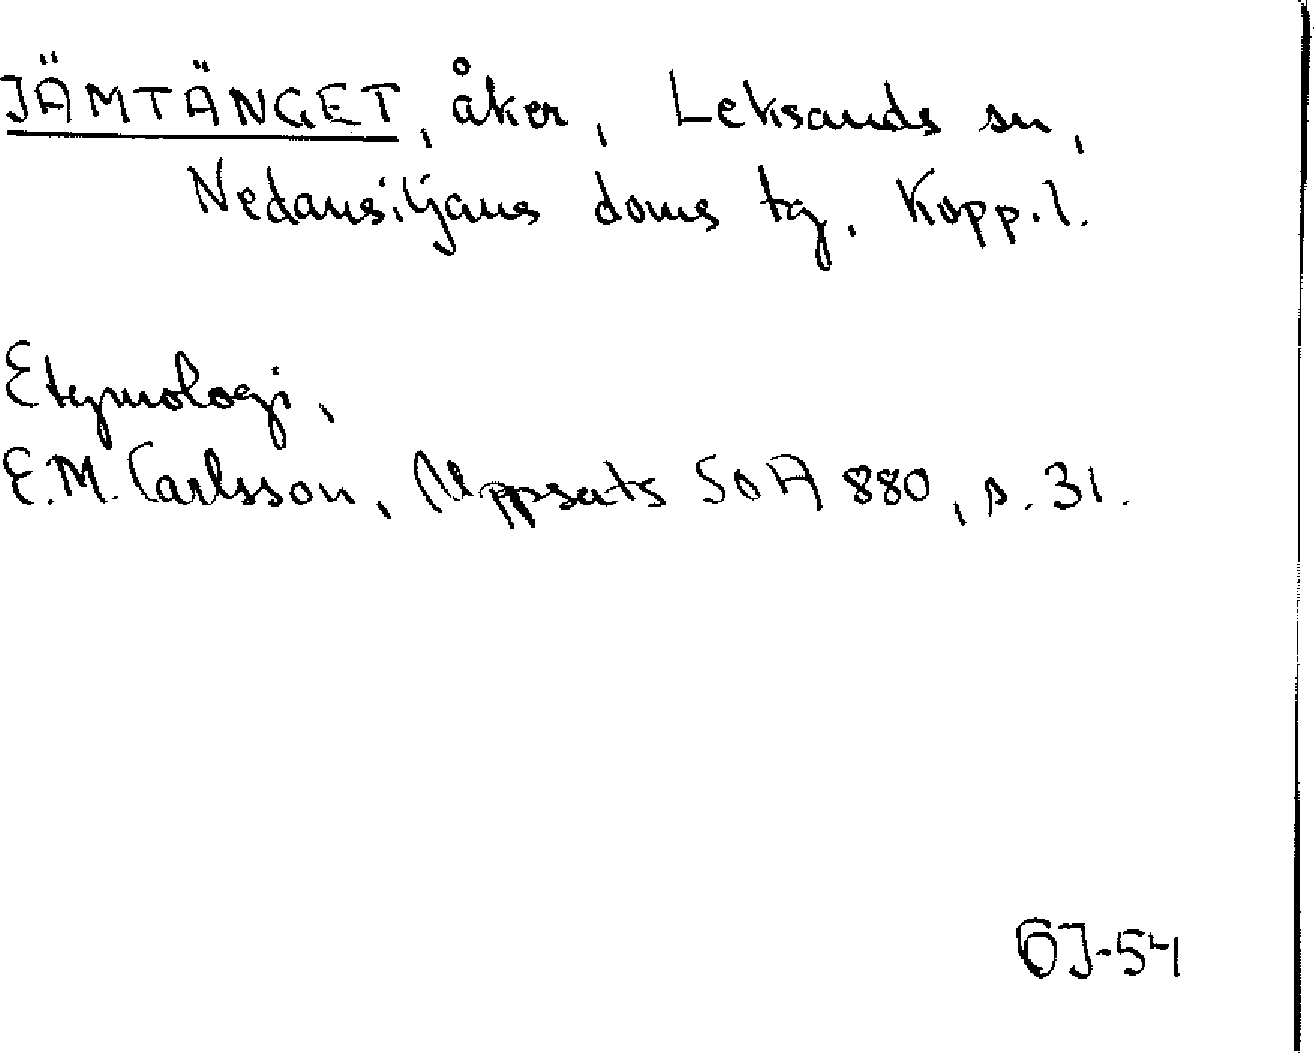 JÄMTÄNGET, åker, Leksands sn,
Nedansiljans doms tg. Kopp. l.
Etymologi,
E.M. Carlsson, Uppsats SOA 880, s. 31.
ÖJ-54